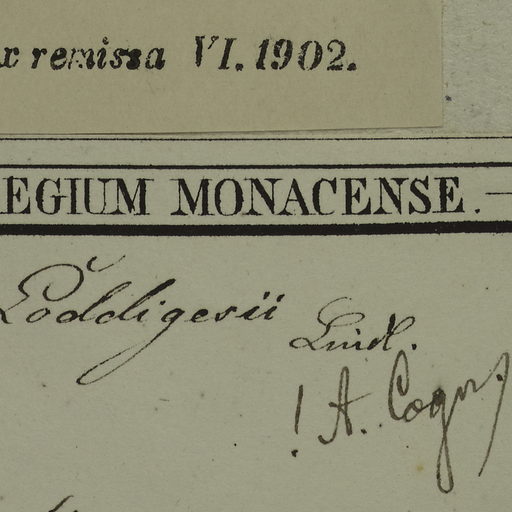 x remissa VI. 1902.
EGIUM MONACENSE.
Loddigesii Lindl.
! A. Cogn.